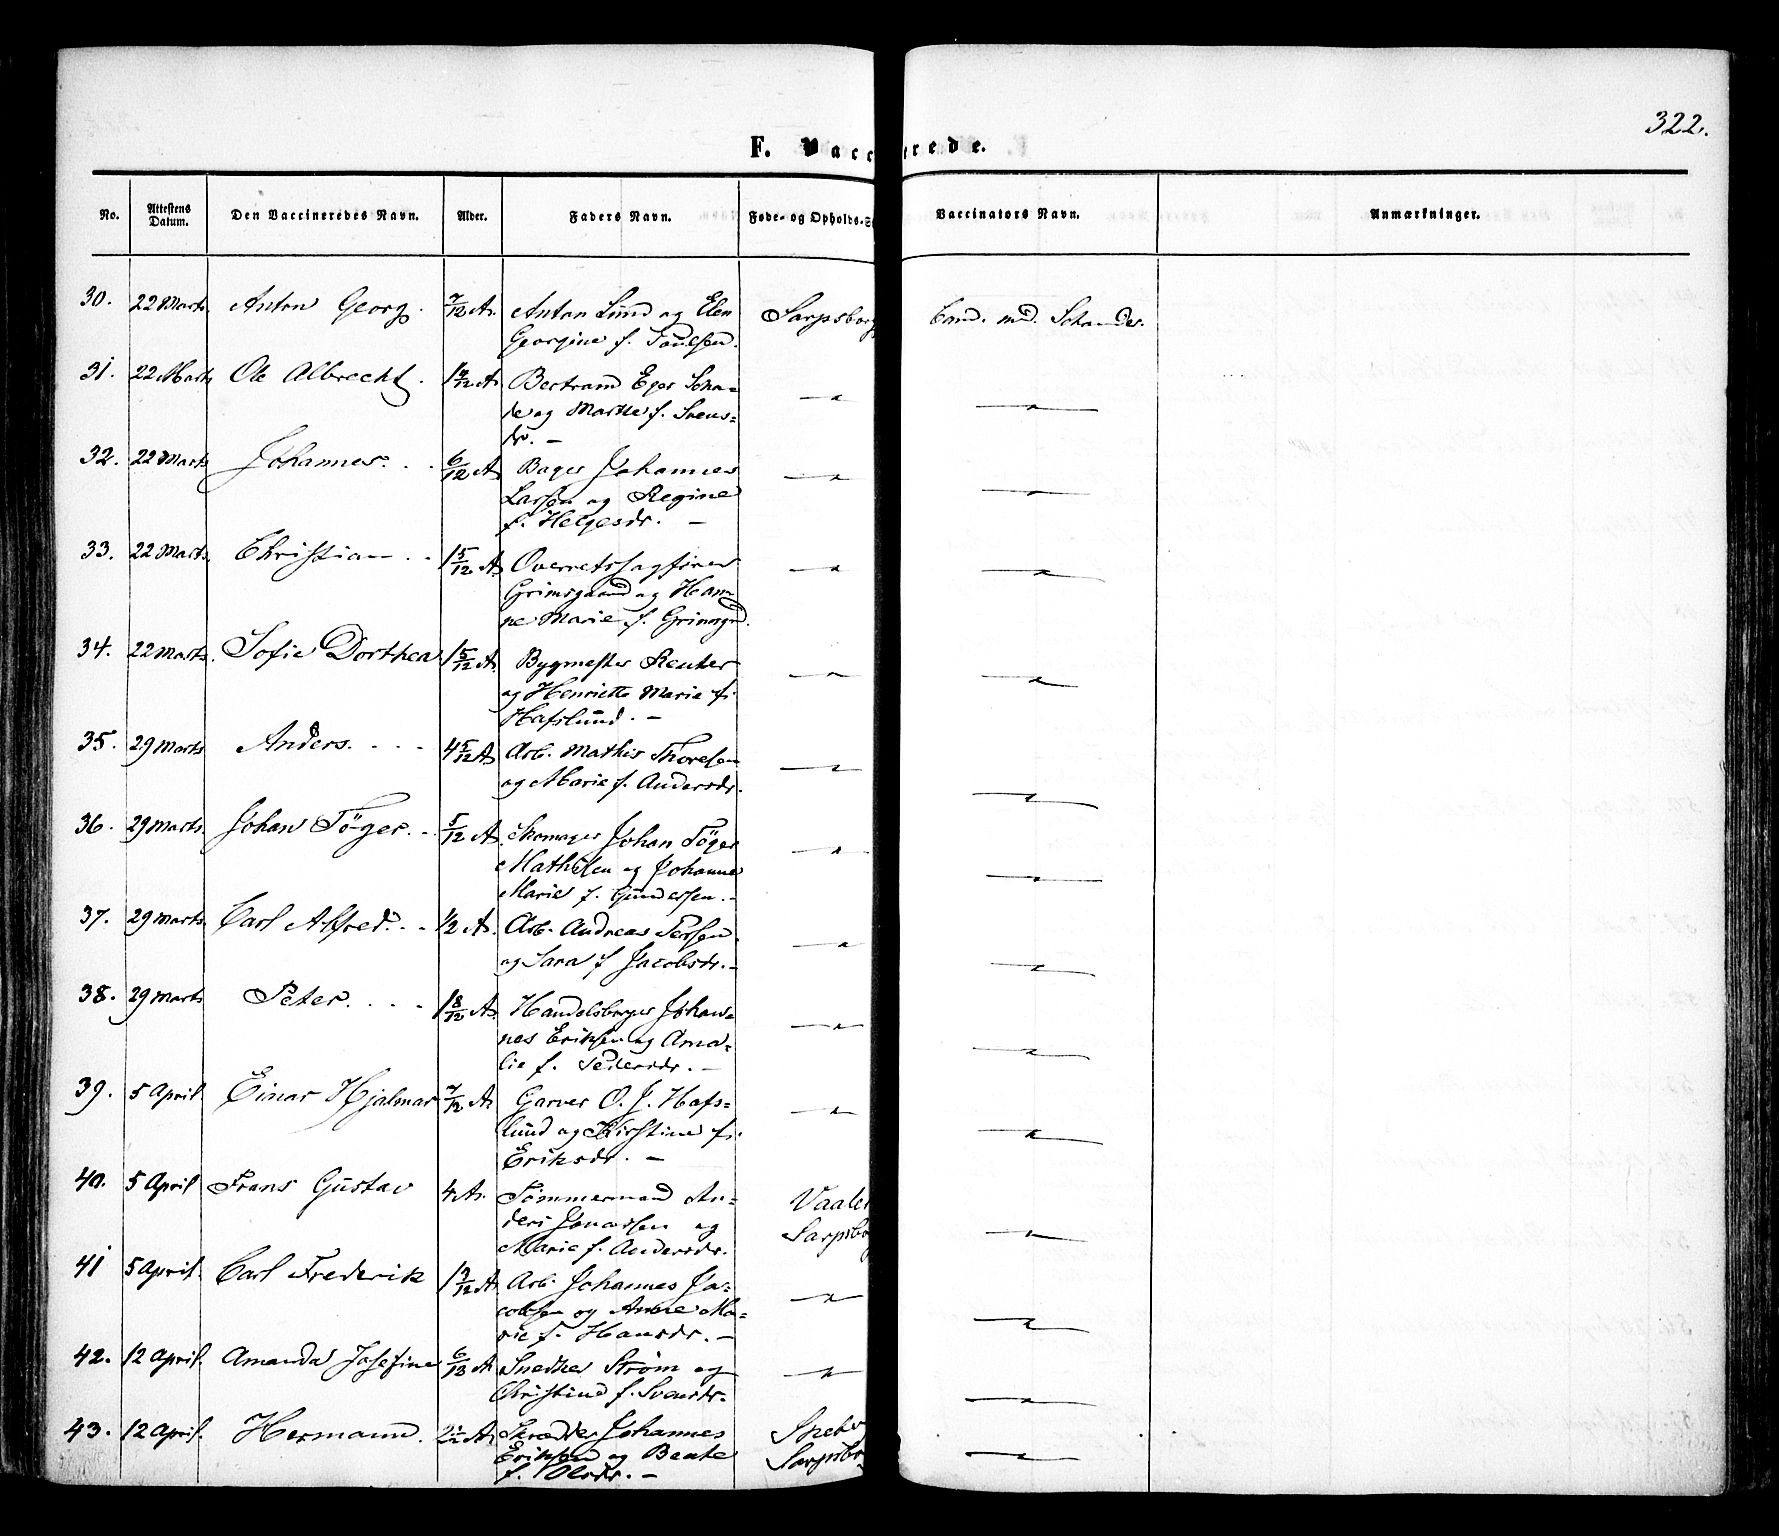 322.
F. Vaccinerede.
No. Attestens Datum. Den Vaccineredes Navn. Alder. Faders Navn. Føde- og Opholds-S Vaccinators Navn. Anmærkninger.
30. 22 Marts. Anton Georg. 7/12 A. Anton Lund og Elen Sarpsborg Cand. md. Schander.
Georgine f. Paulsen.
31. 22 Marts Ole Albrecht. A. Bertrand Eger Scha= — " — — " —
de og Marthe f. Svens=
dr. —
32. 22 Marts Johannes. . . 6/12 A. Bager Johannes — " — — " —
Larsen og Regine
f. Helgesdr. —
33. 22 Marts. Christian . . 1 5/12 A. Overretssagfører — " — — " —
Grimsgaard og Han
ne Marie f. Grimsgrd.
34. 22 Marts. Sofie Dorthea 1 5/12 A. Bygmester Reuter — " — — " —
og Henriette Marie f.
Hafslund. —
35. 29 Marts Anders. . . . 4 5/12 A. Arb. Mathis Thoresen — " — — " —
og Marie f. Andersdr.
36. 29 Marts. Johan Töger. . . 5/12 A. Skomager Johan Töger — " — — " —
Mathisen og Johanne
Marie f. Gundersen. -
37. 29 Marts. Carl Alfred. . . 1/2 A. Arb. Andreas — " — — " —
og Sara f Jacobsdr. —
38. 29 Marts Peter. . . . 1 8/12 A. Handelsborger Johan= — " — — " —
nes Eriksen og Ama=
lie f. Pedersdr. —
39. 5 April Einar Hjalmar 7/12 A. Garver O. J. Hafs= — " — — " —
lund og Kirstine f.
Eriksdr. —
40. 5 April Frans Gustav 4 A. Tømmermand An= Vaaler — " —
ders Jonassen og Sarpsbo
Marie f. Andersdr.
41 5 April. Carl Frederik A. Arb. Johannes Ja= — " — — " —
cobsen og Anne Ma=
rie f. Hansdr. —
42. 12 April. Amanda Josefine A. Snedker Strøm og — " — — " —
Christine f. Svensdr.
43. 12 April. Hermann. A. Skrædder Johannes — " —
Eriksen og Beate Sarpsbo
f. Olsdr. —